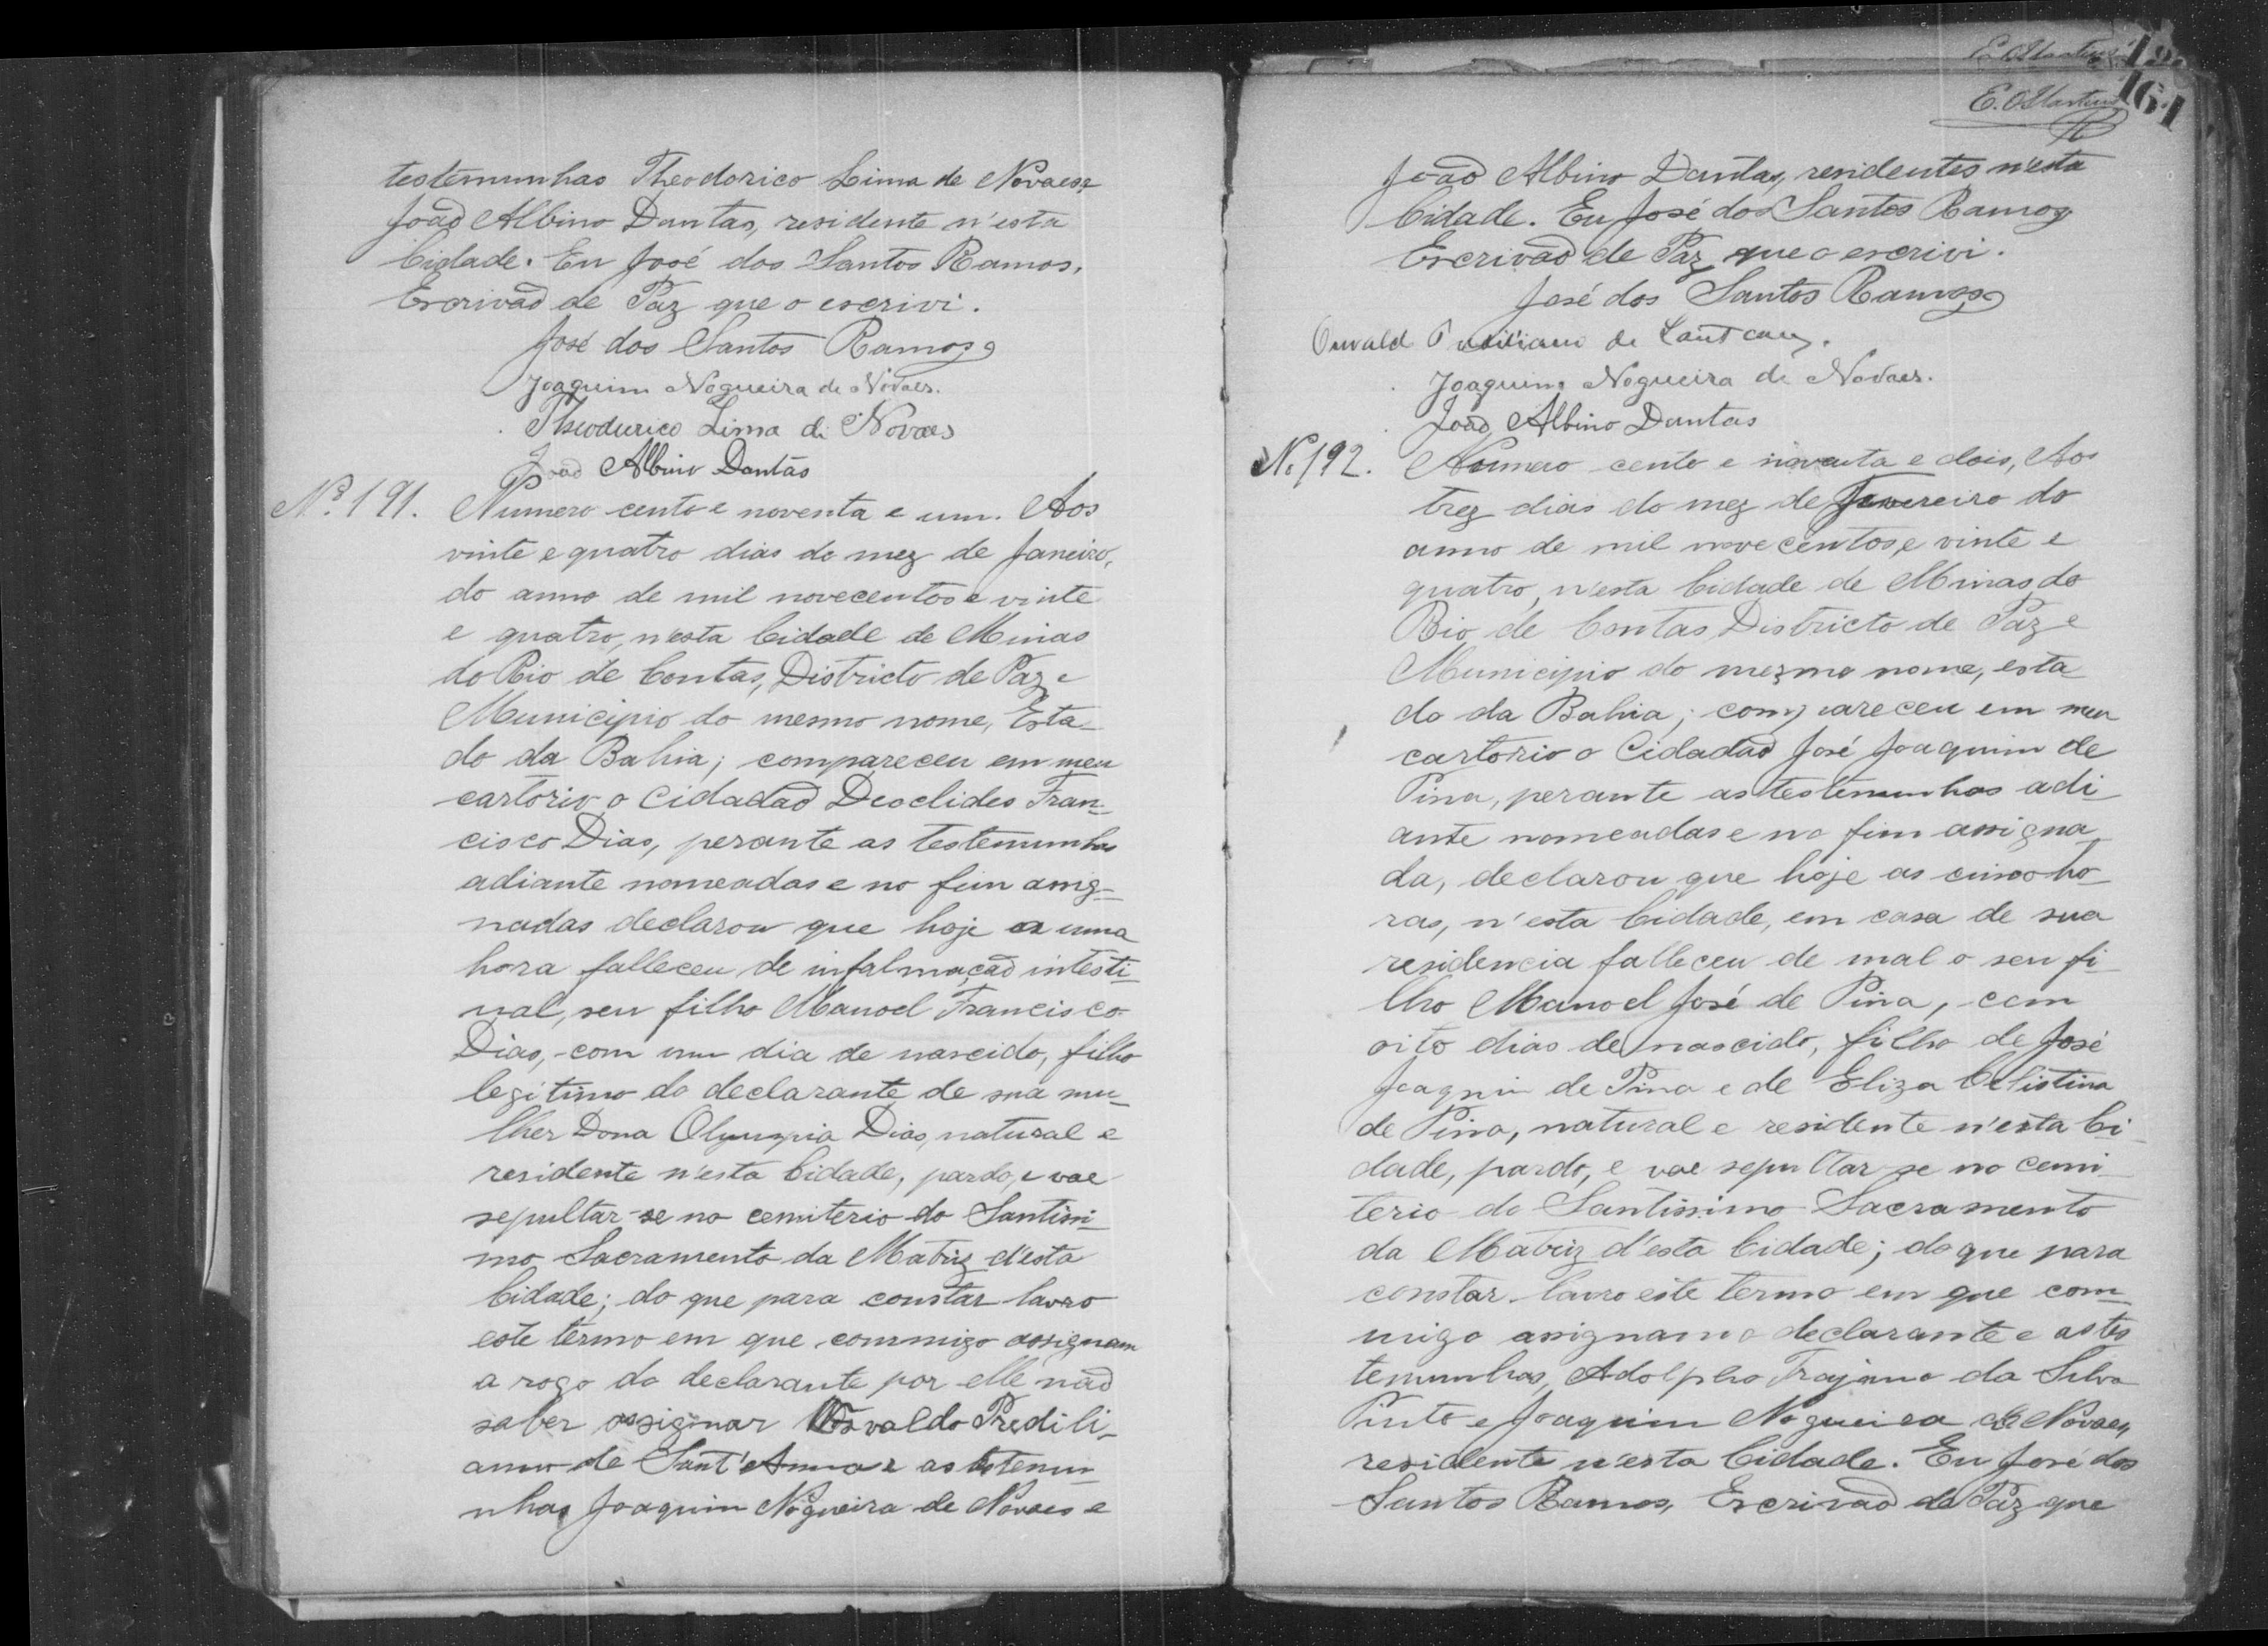 testemunhas Theodorico Lima de Novaes e
João Albino Dantas, residente n'esta
Cidade. Eu José dos Santos Ramos,
Escrivão de Paz que o escrivi.
José dos Santos Ramos
Joaquim Nogueira de Novaes.
Theodurico Lima de Novaes
João Albino Dantas
Nº 191. Numero cento e noventa e um. Aos
vinte e quatro dias do mez de Janeiro,
do anno de mil novecentos e vinte
e quatro, n'esta Cidade de Minas
do Rio de Contas, Districto de Paz e
Municipio do mesmo nome, Esta-
do da Bahia; compareceu em meu
cartorio o Cidadão Deoclides Fran-
cisco Dias, perante as testemunhas
adiante nomeadas e no fim assig-
nadas declarou que hoje a uma
hora falleceu de infalmação intesti-
nal, seu filho Manoel Francisco
Dias, com um dia de nascido, filho
legitimo do declarante de sua mu-
lher Dona Olympia Dias, natural e
residente n'esta Cidade, pardo, e vae
sepultar-se no cemiterio do Santissi-
mo Sacramento da Matriz d'esta
Cidade; do que para constar lavro
este termo em que commigo assignam
a rogo do declarante por elle não
saber assignar Osvaldo Predili-
anno de Sant'Anna e as testemu-
nhas Joaquim Nogueira de Novaes e
E. O. Martins
E. O. Martins
161
João Albino Dantas, residentes n'esta
Cidade. Eu José dos Santos Ramos
Escrivão de Paz que o escrivi.
José dos Santos Ramos
de
Joaquim Nogueira de Novaes.
João Albino Dantas
Nº 192. Numero cento e noventa e dois, Aos
trez dias do mez de Fevereiro do
anno de mil novecentos e vinte e
quatro, n'esta Cidade de Minas do
Rio de Contas, Districto de Paz e
Municipio do mezmo nome, esta
do da Bahia; compareceu em meu
cartorio o Cidadão José Joaquim de
Pina, perante as testemunhas adi-
ante nomeadas e no fim assigna-
da, declarou que hoje as cinco ho-
ras, n'esta Cidade, em casa de sua
residencia falleceu de mal o seu fi-
lho Manoel José de Pina, com
oito dias de nascido, filho de José
Joaquin de Pina e de Eliza Celistina
de Pina, natural e residente n'esta Ci-
dade, pardo, e vae sepultar-se no cemi-
terio do Santissimo Sacramento
da Matriz d'esta Cidade; do que para
constar lavro este termo em que com-
migo assignam o declarante e as tes
temunhas, Adolpho Trajano da Silva
Pinto e Joaquim Nogueira de Novaes,
residente n'esta Cidade. Eu José dos
Santos Ramos, Escrivão de Paz que